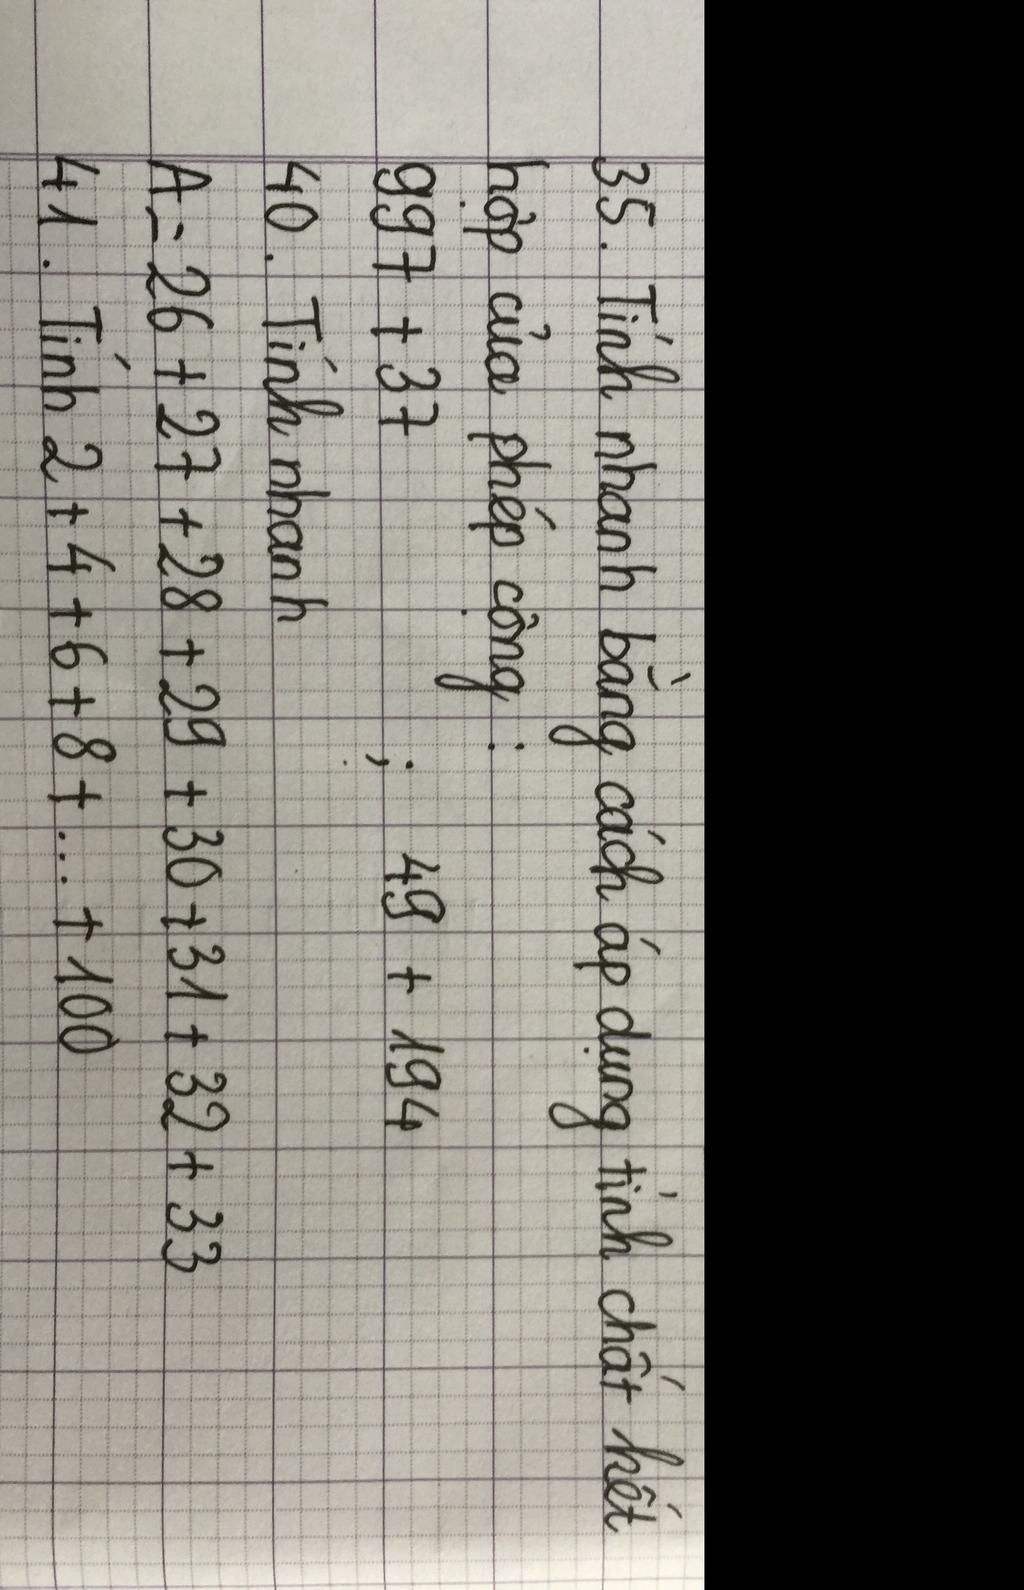 35. Tính nhanh bằng cách áp dụng tính chất hết
hợp của phép cộng :
997 + 37 ; 49 + 194
40. Tính nhanh
A = 26 + 27 + 28 + 29 + 30 + 31 + 32 + 33
41. Tính 2 + 4 + 6 + 8 + .... + 100